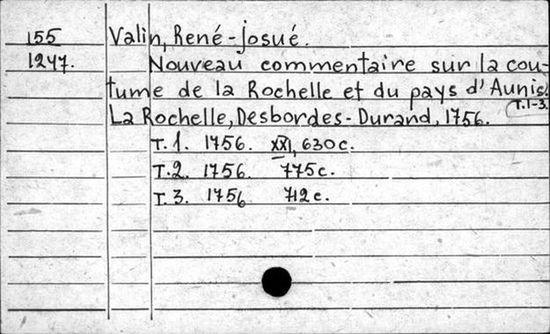 155 Valin, René-josué.
1247. Nouveau commentaire sur la cou-
tume de la Rochelle et du pays d'Aunis.
T.1-3
La Rochelle, Desbordes-Durand, 1756.
T. 1. 1756. XXI, 630 c.
T. 2. 1756. 775 c.
T. 3. 1756 712 c.